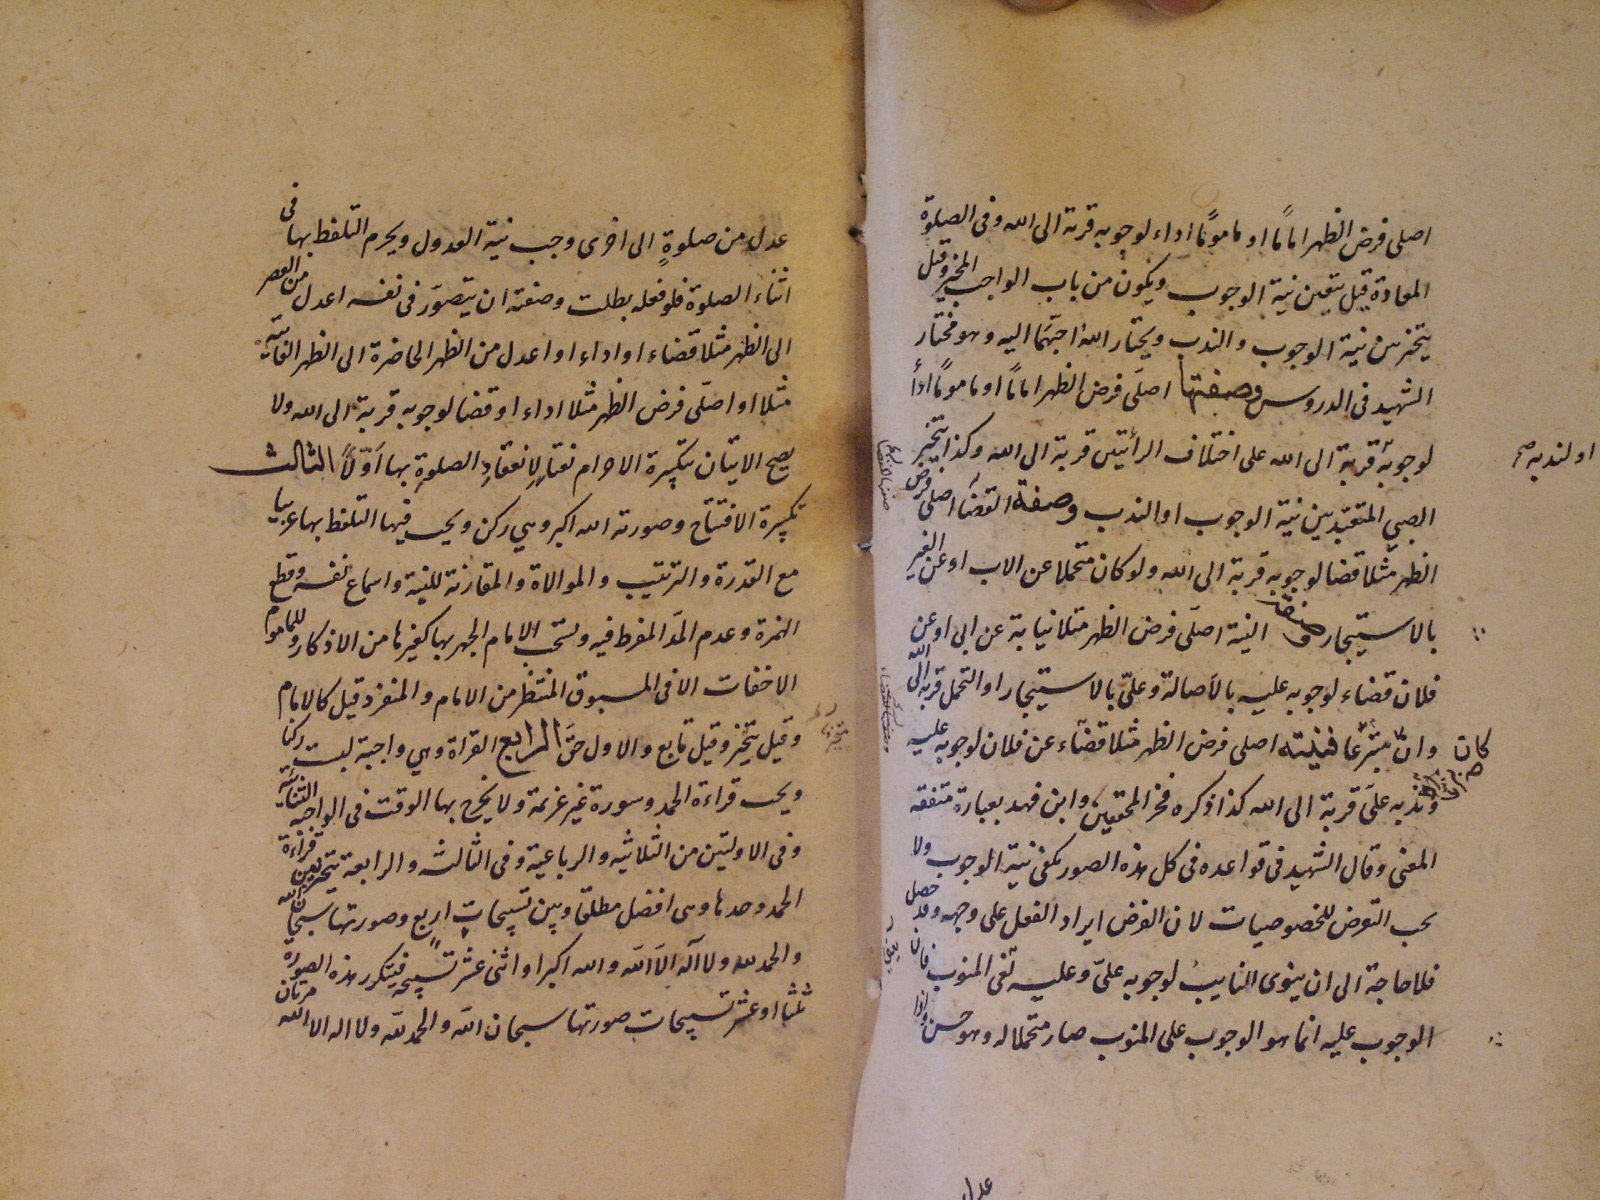 اصلى فرض الظهر امامًا او مامومًا اداء لوجوبه قربة الى الله وفى الصلوة
المعادة قيل يتعين نية الوجوب ويكون من باب الواجب المخير وقيل
يتخير بين نية الوجوب والندب ويختار الله احبّهما اليه وهو مختار
الشهيد فى الدروس وصفتها اصلّى فرض الظهر امامًا او مامومًا اداءً
لوجوبه قربة الى الله على اختلاف الرأيتين قربة الى الله وكذا يتخير
او لندبه صح
الصبي المتعبد بين نية الوجوب او الندب وصفة القضا اصلى فرض
الظهر مثلا قضا لوجوبه قربة الى الله ولو كان متحملا عن الاب او عن الغير
بالاستيجار وصفة النية اصلّى فرض الظهر مثلا نيابة عن ابى او عن
فلان قضاء لوجوبه عليه بالاصالة وعلىّ بالاستيجار او التحمل قربة الى الله
وان كان متبرّعًا فنيته اصلى فرض الظهر مثلا قضاء عن فلان لوجوبه عليه
وندبه علىّ قربة الى الله كذا ذكره فخر المحققين وابن فهد بعبارة متفقة
المعنى وقال الشهيد فى قواعده فى كل هذه الصور يكفى نية الوجوب ولا
يجب التعرض للخصوصيات لان الغرض ايراد الفعل على وجهه وقد حصل
فلا حاجة الى ان ينوى النايب لوجوبه علىّ وعليه تغى المنوب فان
الوجوب عليه انما هو الوجوب على المنوب صار متحملا له وهو حسن واذا
عدل
عدل من صلوةٍ الى اخرى وجب نية العدول ويحرم التلفظ بها فى
اثناء الصلوة فلو فعله بطلت وصفته ان يتصوّر فى نفسه اعدل من العصر
الى الظهر مثلا قضاء او اداء او اعدل من الظهر الحاضرة الى الظهر الفائتة
مثلا او اصلّى فرض الظهر مثلا اداء او قضا لوجوبه قربة الى الله ولا
يصح الاتيان بتكبيرة الاحرام لانعقادِ الصلوةِ بها اَوّلًا الثالث
تكبيرة الافتتاح وصورته الله اكبر وهي ركن ويجب فيها التلفظ بها عربيا
مع القدرة والترتيب والموالاة والمقارنة للنية واسماع نفسه وقطع
الهمزة وعدم المدّ المفرط فيه ويستحب للامام الجهر بها كغيرها من الاذكار وللماموم
الاخفات الا فى المسبوق المنتظر من الامام والمنفرد قيل كالامام
وقيل يتخير وقيل تابع والاول حقّ الرابع القراة وهي واجبة ليست ركنا
ويجب قراءة الحمد وسورة غير عزيمة ولا يخرج بها الوقت فى الواجبة الثنائية
وفى الاولتين من الثلاثيه والرباعية وفى الثالثة والرابعة يتخير بين قراءة
الحمد وحدها وهى افضل مطلقًا وبين تسبيحات اربع وصورتها سبحان الله
والحمد لله ولا اله الا الله والله اكبر او اثنى عشر تسبيحة فيتكرر هذه الصورة
ثلثًا او عشر تسبيحات صورتها سبحان الله والحمد لله ولا اله الا الله مرتان